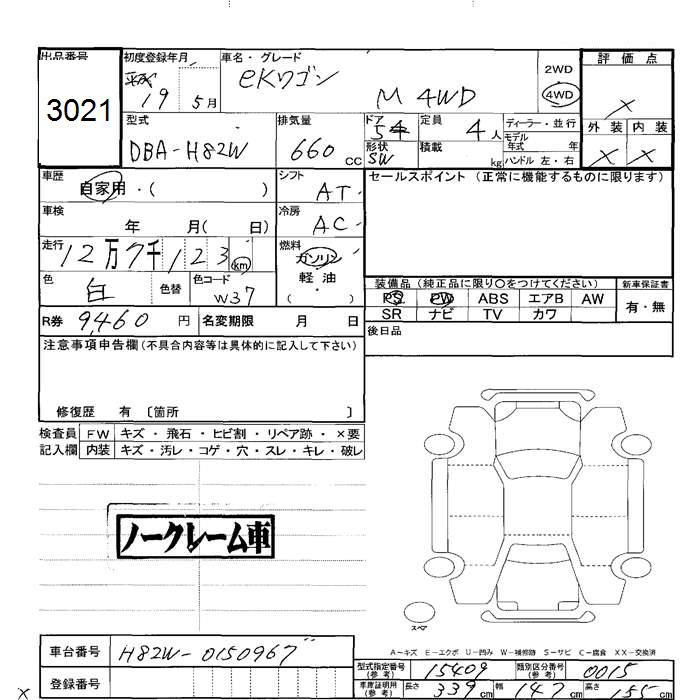 出品番号
3021
初度登録年月
19 5月
車名・グレード
eKワゴン
M 4WD
2WD
4WD
評価点
×
外装 内装
× ×
型式
DBA-H82W
排気量
660 cc
ドア
5
形状
SW
定員
4人
積載
kg
ディーラー・並行
モデル
年式 年
ハンドル 左・右
車歴
自家用・( )
シフト
AT
セールスポイント (正常に機能するものに限ります)
車検
年 月( 日)
冷房
AC
走行
12万7千123km
燃料
ガソリン
軽油
( )
色
白
色替
色コード
W37
装備品(純正品に限り〇をつけてください)
PS PW ABS エアB AW
SR ナビ TV カワ
新車保証書
有・無
R券 9,460 円
名変期限 月 日
後日品
注意事項申告欄(不具合内容等は具体的に記入して下さい)
修復歴 有 〔箇所 〕
検査員
記入欄
FW キズ・飛石・ヒビ割・リペア跡・×要
内装 キズ・汚レ・コゲ・穴・スレ・キレ・破レ
ノークレーム車
スペア
A－キズ E－エクボ U－凹み W－補修跡 S－サビ C－腐食 XX－交換済
車台番号 H82W-0150967
登録番号
型式指定番号
(参考)
15409
類別区分番号
(参考)
0015
車庫証明用
(参考)
長さ 339cm 幅 147cm 高さ 155cm
×